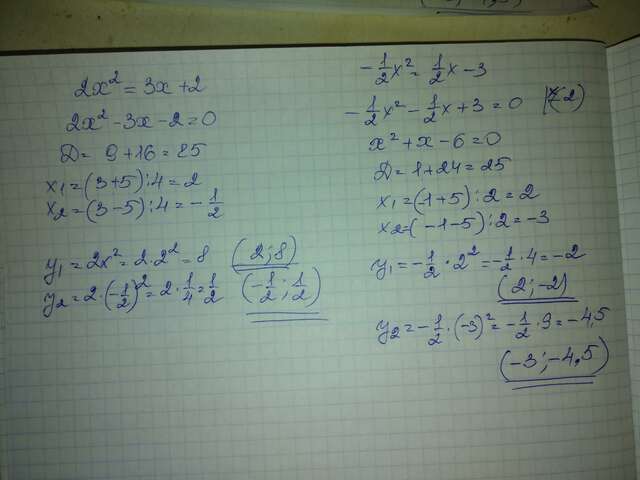 2x² = 3x + 2
2x² - 3x - 2 = 0
D = 9 + 16 = 25
x₁ = (3+5):4 = 2
x₂ = (3-5):4 = -1/2
y₁ = 2x² = 2·2² = 8 (2;8)
y₂ = 2·(-1/2)² = 2·1/4 = 1/2 (-1/2;1/2)
-1/2x² = 1/2x - 3
-1/2x² - 1/2x + 3 = 0
x² + x - 6 = 0
D = 1 + 24 = 25
x₁ = (-1+5):2 = 2
x₂ = (-1-5):2 = -3
y₁ = -1/2·2² = -1/2·4 = -2
(2;-2)
y₂ = -1/2·(-3)² = -1/2·9 = -4,5
(-3;-4,5)